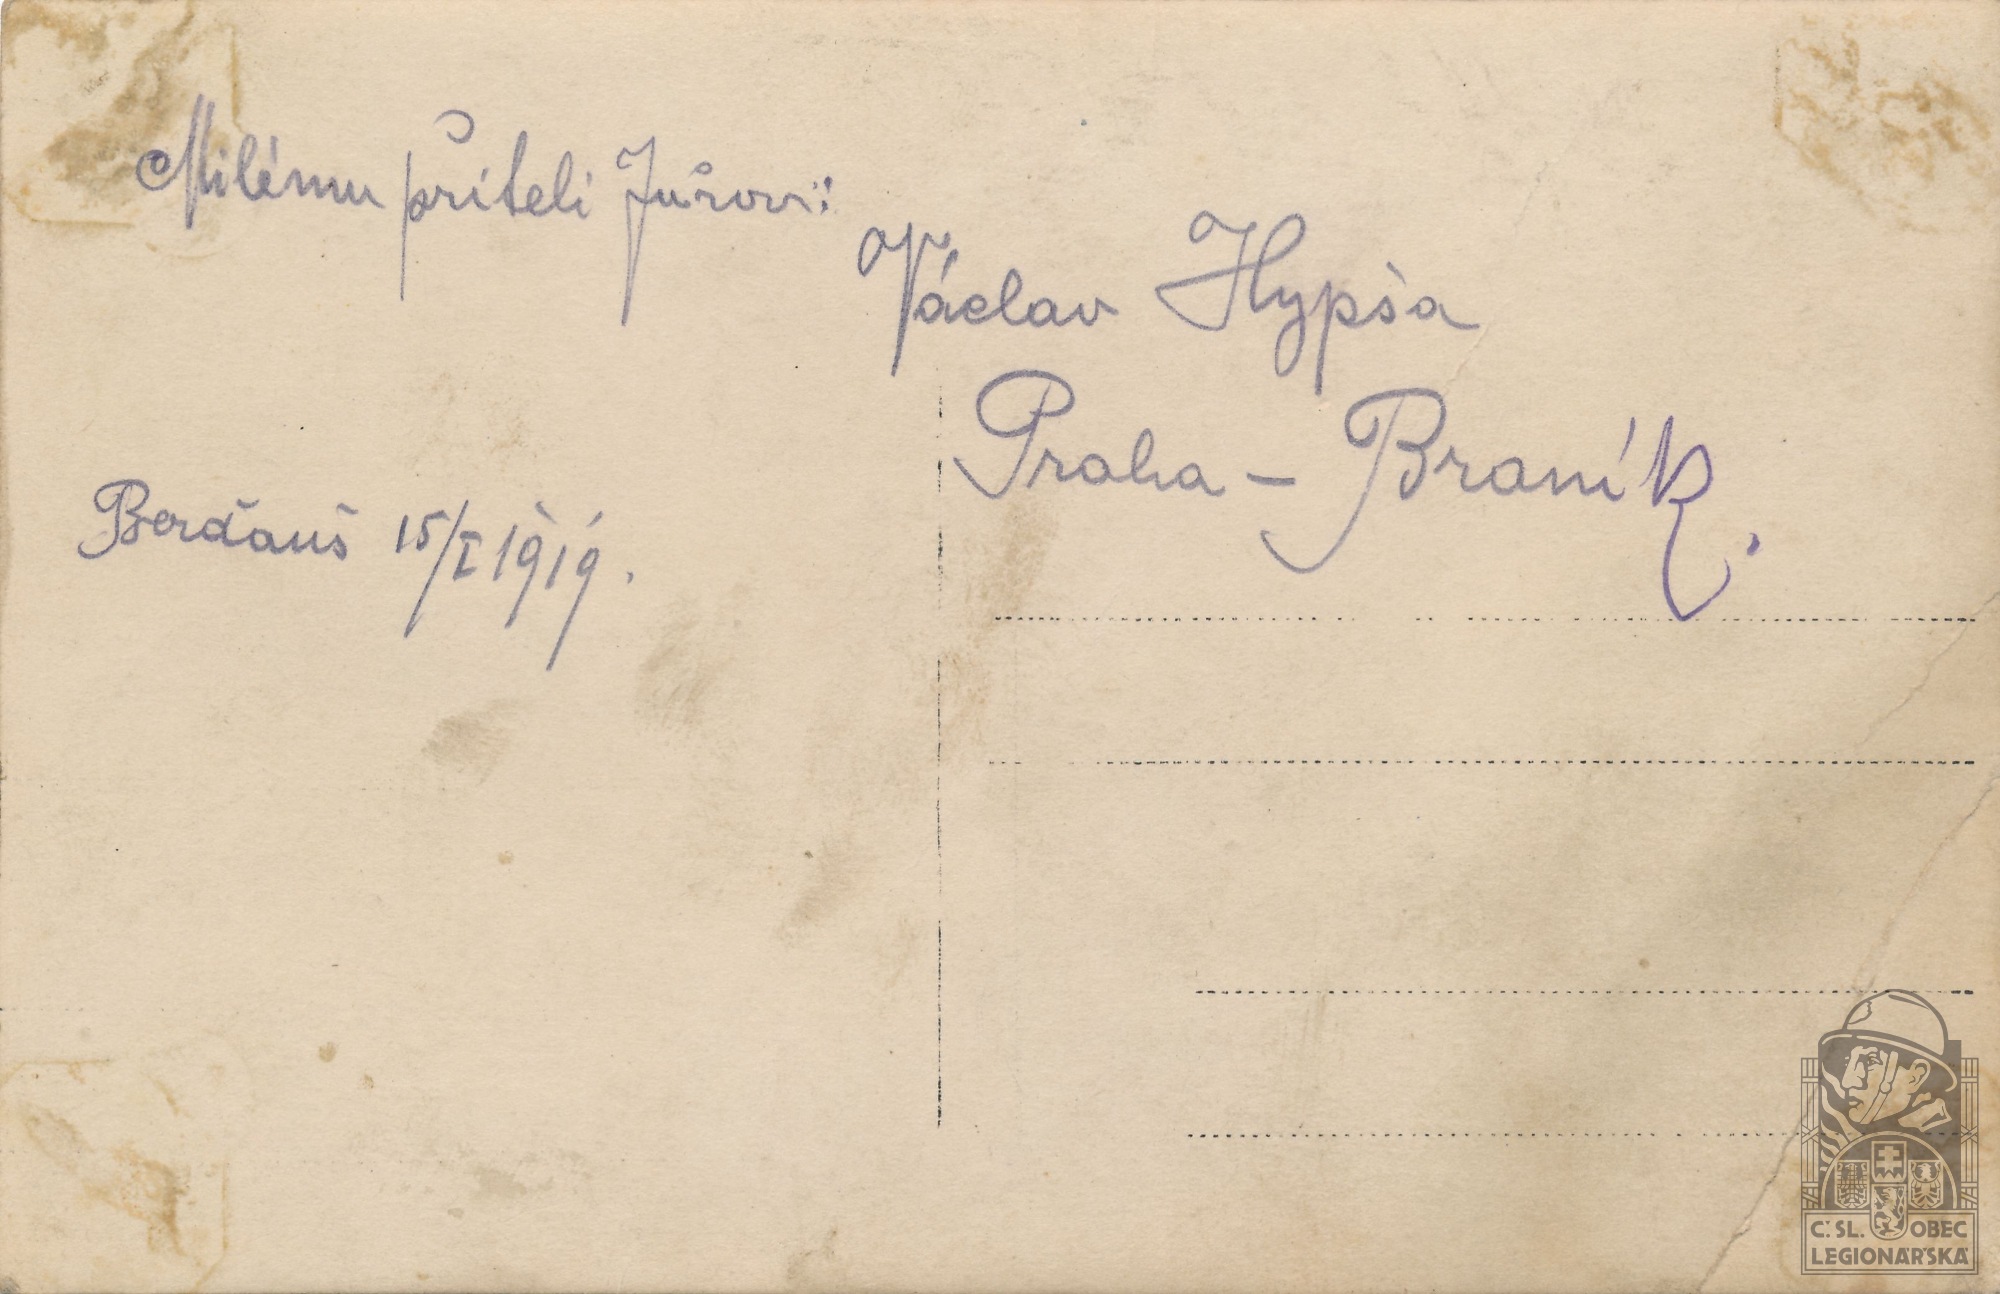 Milému příteli Jůrovi:
Václav Hypša
Praha – Braník.
Berďauš 15/I 1919.
Č.SL. OBEC
LEGIONÁŘSKÁ